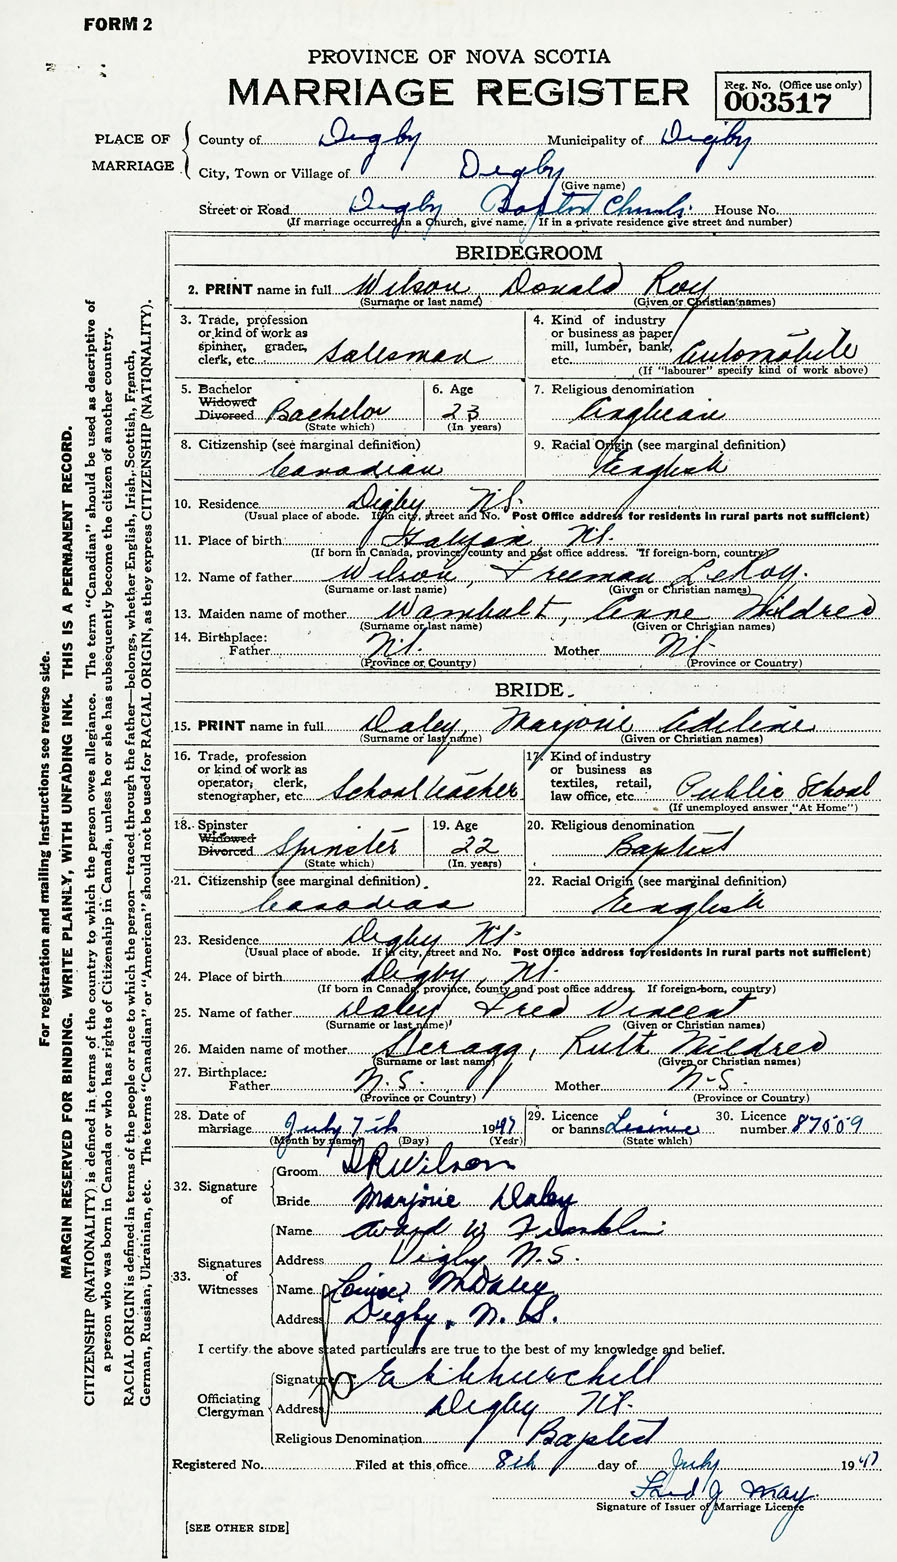 FORM 2
PROVINCE OF NOVA SCOTIA
MARRIAGE REGISTER
Reg. No. (Office use only)
003517
PLACE OF MARRIAGE
County of Digby Municipality of Digby
City, Town or Village of Digby
(Give name)
Street or Road Digby Baptist Church House No.
(If marriage occurred in a Church, give name. If in a private residence give street and number)
BRIDEGROOM
2. PRINT name in full Wilson Donald Roy
(Surname or last name) (Given or Christian names)
3. Trade, profession or kind of work as spinner, grader, clerk, etc. Salesman
4. Kind of industry or business as paper mill, lumber, bank, etc. Automobile
(If "labourer" specify kind of work above)
5. Bachelor Widowed Divorced Bachelor
(State which)
6. Age 23
(In years)
7. Religious denomination
Anglican
8. Citizenship (see marginal definition)
Canadian
9. Racial Origin (see marginal definition)
English
10. Residence Digby N.S.
(Usual place of abode. If in city, street and No. Post Office address for residents in rural parts not sufficient)
11. Place of birth Halifax N.S.
(If born in Canada, province, county and post office address. If foreign-born, country)
12. Name of father Wilson, Freeman LeRoy.
(Surname or last name) (Given or Christian names)
13. Maiden name of mother Wambolt, Anne Mildred
(Surname or last name) (Given or Christian names)
14. Birthplace:
Father N.S. Mother N.S.
(Province or Country) (Province or Country)
BRIDE
15. PRINT name in full Daley, Marjorie Adeline
(Surname or last name) (Given or Christian names)
16. Trade, profession or kind of work as operator, clerk, stenographer, etc. School teacher
17. Kind of industry or business as textiles, retail, law office, etc. Public School
(If unemployed answer "At Home")
18. Spinster Widowed Divorced Spinster
(State which)
19. Age 22
(In years)
20. Religious denomination
Baptist
21. Citizenship (see marginal definition)
Canadian
22. Racial Origin (see marginal definition)
English
23. Residence Digby N.S.
(Usual place of abode. If in city, street and No. Post Office address for residents in rural parts not sufficient)
24. Place of birth Digby, N.S.
(If born in Canada, province, county and post office address. If foreign-born, country)
25. Name of father Daley Fred Vincent
(Surname or last name) (Given or Christian names)
26. Maiden name of mother Scragg, Ruth Mildred
(Surname or last name) (Given or Christian names)
27. Birthplace:
Father N.S. Mother N.S.
(Province or Country) (Province or Country)
28. Date of marriage July 7th 1947
(Month by name) (Day) (Year)
29. Licence or banns License
(State which)
30. Licence number 87559
32. Signature of
Groom D R Wilson
Bride Marjorie Daley
33. Signatures of Witnesses
Name W Franklin
Address Digby N.S.
Name Louise M Daley
Address Digby, N. S.
I certify the above stated particulars are true to the best of my knowledge and belief.
Officiating Clergyman
Signature Churchill
Address Digby N.S.
Religious Denomination Baptist
Registered No. Filed at this office 8th day of July 1947
Fred J May
Signature of Issuer of Marriage Licence
[SEE OTHER SIDE]
For registration and mailing instructions see reverse side.
MARGIN RESERVED FOR BINDING. WRITE PLAINLY, WITH UNFADING INK. THIS IS A PERMANENT RECORD.
CITIZENSHIP (NATIONALITY) is defined in terms of the country to which the person owes allegiance. The term "Canadian" should be used as descriptive of
a person who was born in Canada or who has rights of Citizenship in Canada, unless he or she has subsequently become the citizen of another country.
RACIAL ORIGIN is defined in terms of the people or race to which the person—traced through the father—belongs, whether English, Irish, Scottish, French,
German, Russian, Ukrainian, etc. The terms "Canadian" or "American" should not be used for RACIAL ORIGIN, as they express CITIZENSHIP (NATIONALITY).